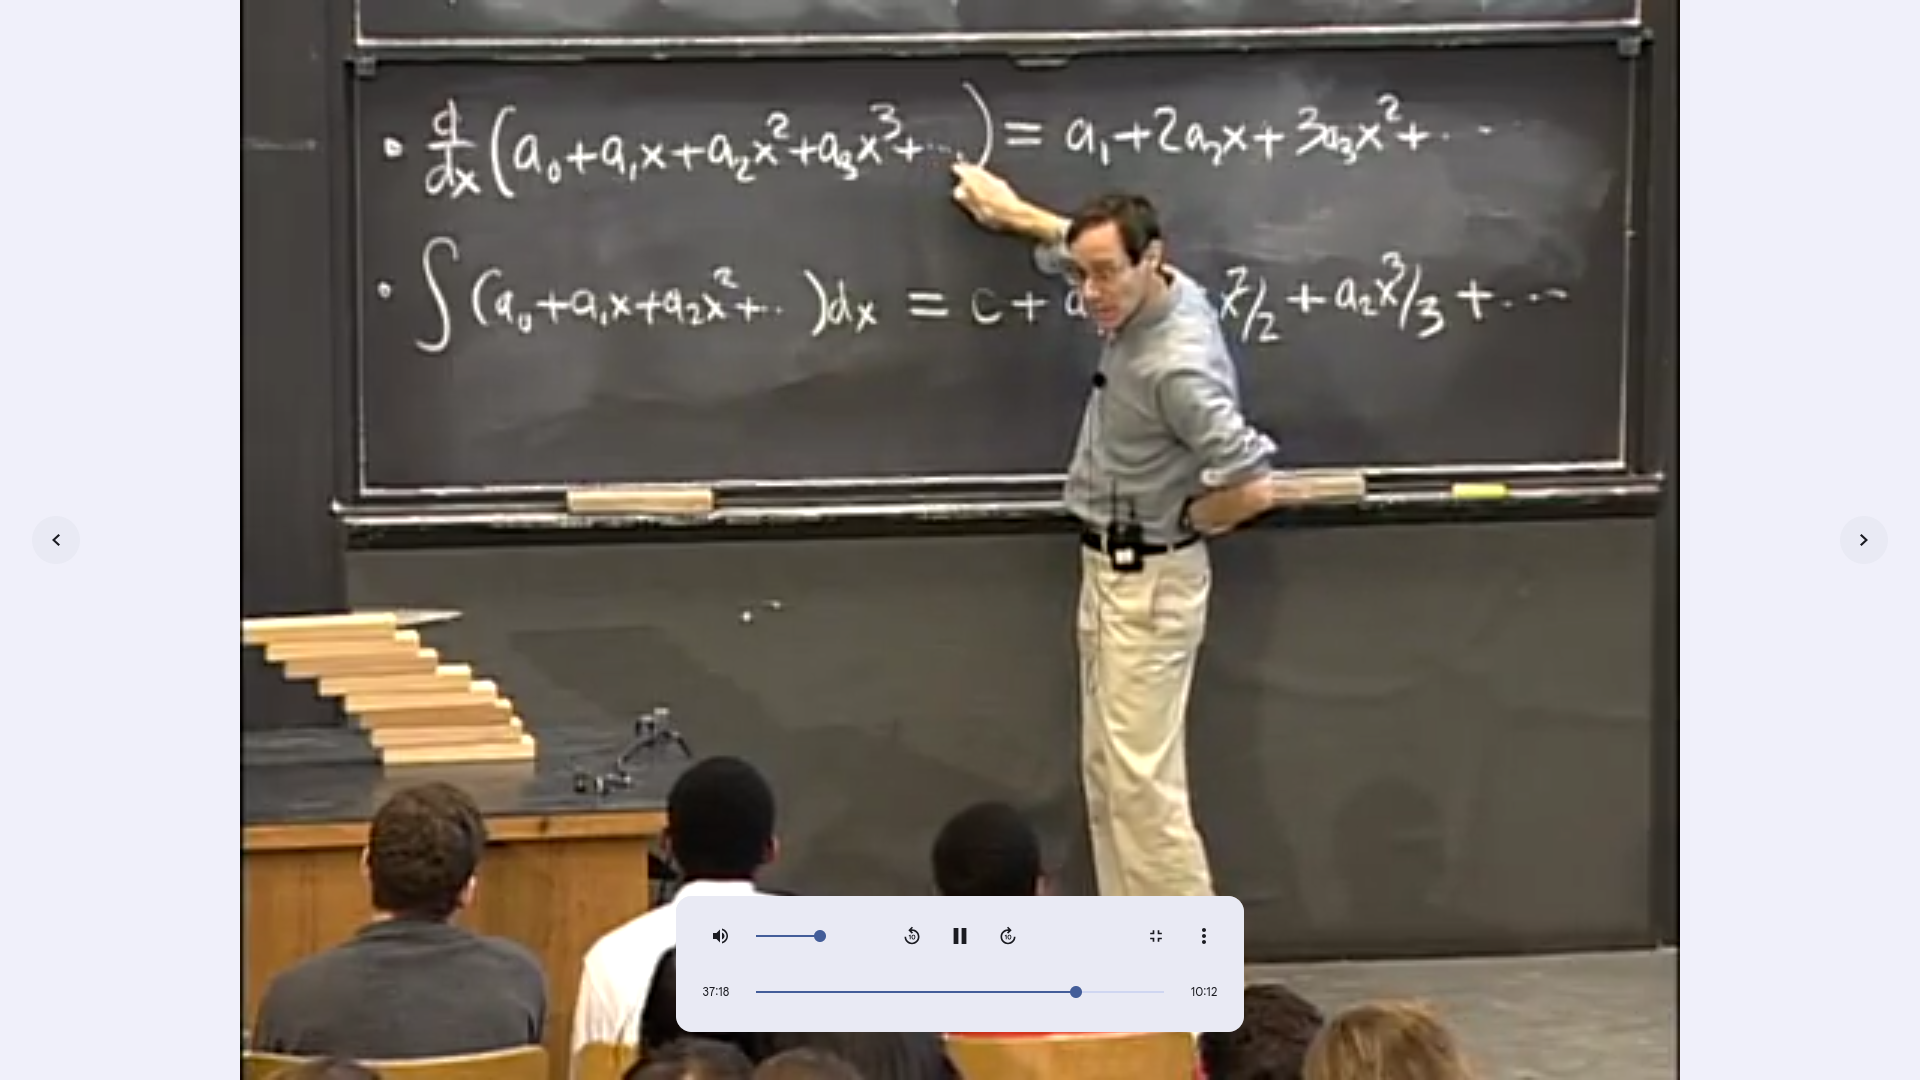 • d/dx (a₀+a₁x+a₂x²+a₃x³+⋯) = a₁+2a₂x+3a₃x²+⋯
• ∫ (a₀+a₁x+a₂x²+⋯)dx = c+a x²/2+a₂x³/3+⋯
10 10
37:18 10:12